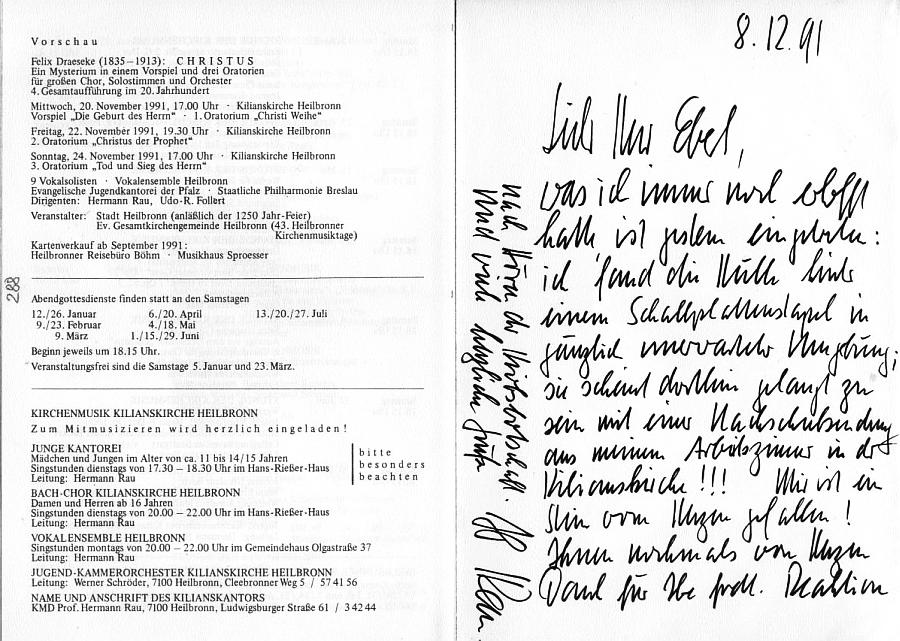 Vorschau
Felix Draeseke (1835–1913): CHRISTUS
Ein Mysterium in einem Vorspiel und drei Oratorien
für großen Chor, Solostimmen und Orchester
4. Gesamtaufführung im 20. Jahrhundert
Mittwoch, 20. November 1991, 17.00 Uhr · Kilianskirche Heilbronn
Vorspiel „Die Geburt des Herrn“ · 1. Oratorium „Christi Weihe“
Freitag, 22. November 1991, 19.30 Uhr · Kilianskirche Heilbronn
2. Oratorium „Christus der Prophet“
Sonntag, 24. November 1991, 17.00 Uhr · Kilianskirche Heilbronn
3. Oratorium „Tod und Sieg des Herrn“
9 Vokalsolisten · Vokalensemble Heilbronn
Evangelische Jugendkantorei der Pfalz · Staatliche Philharmonie Breslau
Dirigenten: Hermann Rau, Udo-R. Follert
Veranstalter: Stadt Heilbronn (anläßlich der 1250 Jahr-Feier)
Ev. Gesamtkirchengemeinde Heilbronn (43. Heilbronner
Kirchenmusiktage)
Kartenverkauf ab September 1991:
Heilbronner Reisebüro Böhm · Musikhaus Sproesser
288
Abendgottesdienste finden statt an den Samstagen
12./26. Januar 6./20. April 13./20./27. Juli
9./23. Februar 4./18. Mai
9. März 1./15./29. Juni
Beginn jeweils um 18.15 Uhr.
Veranstaltungsfrei sind die Samstage 5. Januar und 23. März.
KIRCHENMUSIK KILIANSKIRCHE HEILBRONN
Zum Mitmusizieren wird herzlich eingeladen!
JUNGE KANTOREI
Mädchen und Jungen im Alter von ca. 11 bis 14/15 Jahren
Singstunden dienstags von 17.30 – 18.30 Uhr im Hans-Rießer-Haus
Leitung: Hermann Rau
bitte
besonders
beachten
BACH-CHOR KILIANSKIRCHE HEILBRONN
Damen und Herren ab 16 Jahren
Singstunden dienstags von 20.00 – 22.00 Uhr im Hans-Rießer-Haus
Leitung: Hermann Rau
VOKALENSEMBLE HEILBRONN
Singstunden montags von 20.00 – 22.00 Uhr im Gemeindehaus Olgastraße 37
Leitung: Hermann Rau
JUGEND-KAMMERORCHESTER KILIANSKIRCHE HEILBRONN
Leitung: Werner Schröder, 7100 Heilbronn, Cleebronner Weg 5 / 57 41 56
NAME UND ANSCHRIFT DES KILIANSKANTORS
KMD Prof. Hermann Rau, 7100 Heilbronn, Ludwigsburger Straße 61 / 3 42 44
8.12.91
Lieber Herr Ebel,
was ich immer noch erhofft
hatte ist gestern eingetreten:
ich fand die hinter
einem Schallplattenstapel in
gänzlich unerwarteter Umgebung;
sie scheint dorthin gelangt zu
sein mit einer
aus meinem Arbeitszimmer in der
Kilianskirche!!! Mir ist ein
Stein vom Herzen gefallen!
Ihnen nochmals von Herzen
Dank für Ihre Reaktion
nach Hören der Hiobsbotschaft.
Und viele herzliche Grüße
Rau